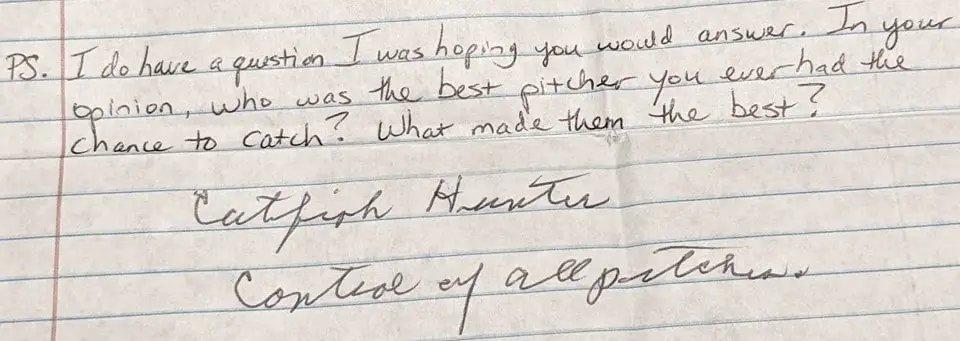 PS. I do have a question I was hoping you would answer. In your
opinion, who was the best pitcher you ever had the
chance to catch? What made them the best?
Catfish Hunter
Control of all pitches.